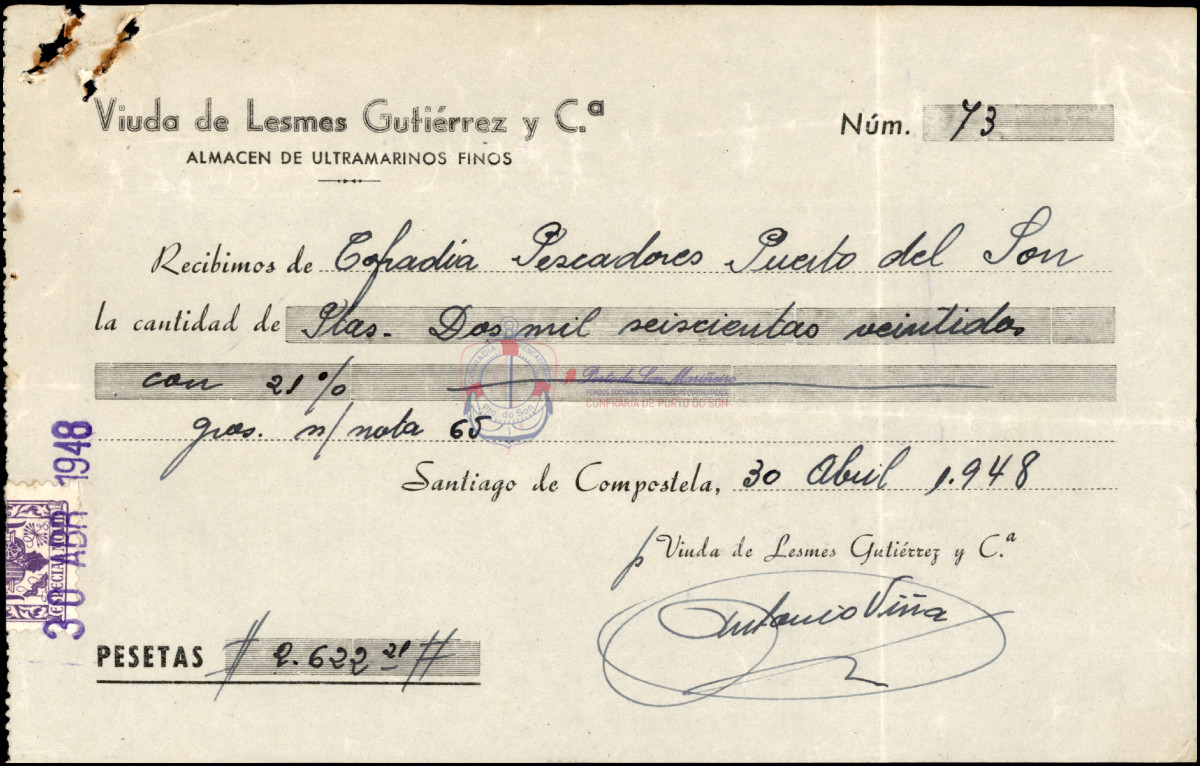 Viuda de Lesmes Gutiérrez y C.ª
ALMACEN DE ULTRAMARINOS FINOS
Núm. 73
Recibimos de Cofradia Pescadores Puerto del Son
la cantidad de Ptas. Dos mil seiscientas veintidos
con 21 %
gros. n/ nota 65
CONFRADIA PESCADORES
Pto. do Son
# Porto do Son Mariñeiro
FONDOS DOCUMENTAIS HISTÓRICOS DIXITALIZADOS
CONFRARÍA DE PORTO DO SON
Santiago de Compostela, 30 Abril 1.948
30 ABR 1948
ESPECIAL MOVIL
p Viuda de Lesmes Gutiérrez y C.ª
Antonio Viña
PESETAS # 2.622 21 #